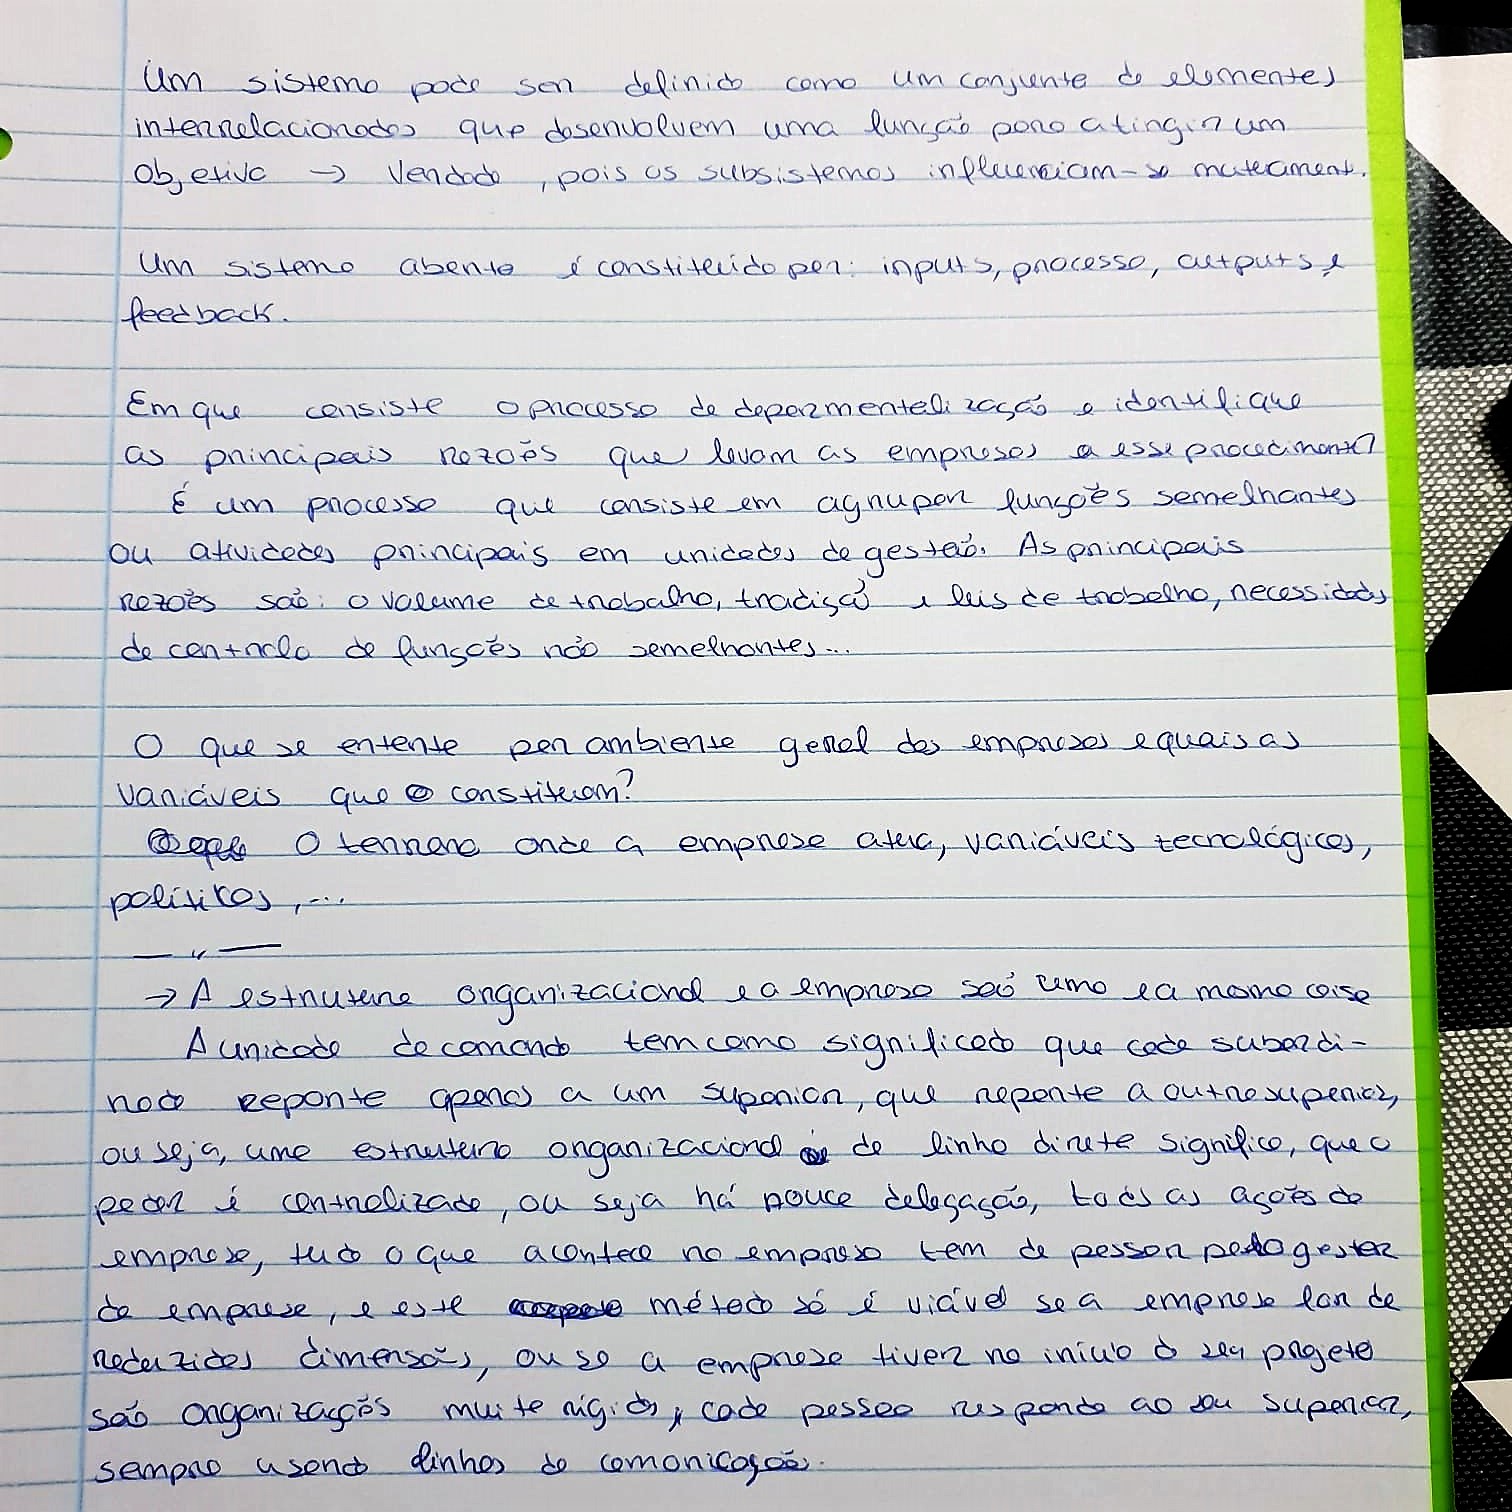 Um sistema pode ser definido como um conjunto de elementos
interrelacionados que desenvolvem uma função para atingir um
objetivo → Verdade, pois os subsistemas influenciam-se mutuament.
Um sistema aberto é constituido por: inputs, processo, outputs e
feedback.
Em que consiste o processo de deparmentalização e identifique
as principais razões que levam as empresas a esse procedimento?
É um processo que consiste em agrupar funções semelhantes
ou atividades principais em unidades de gestão. As principais
razões são: o volume de trabalho, tradição e leis de trabalho, necessidades
de controlo de funções não semelhantes...
O que se entente por ambiente geral das empresas e quais as
variáveis que o constituem?
O terreno onde a empresa atua, variáveis tecnológicas,
políticas, ...
— " —
→ A estrutura organizacional e a empresa são uma e a mesma coisa
A unidade de comando tem como significado que cada subordi-
nado reporte apenas a um superior, que reporte a outro superior,
ou seja, uma estrutura organizacional de linha direta significa, que o
poder é centralizado, ou seja há pouca delegação, todas as ações da
empresa, tudo o que acontece na empresa tem de passar pelo gestor
da empresa, e este método só é viável se a empresa for de
reduzidas dimensões, ou se a empresa tiver no inicio do seu projeto
são organizações muito rígidas, cada pessoa responde ao seu superior,
sempre usando linhas de comonicação.